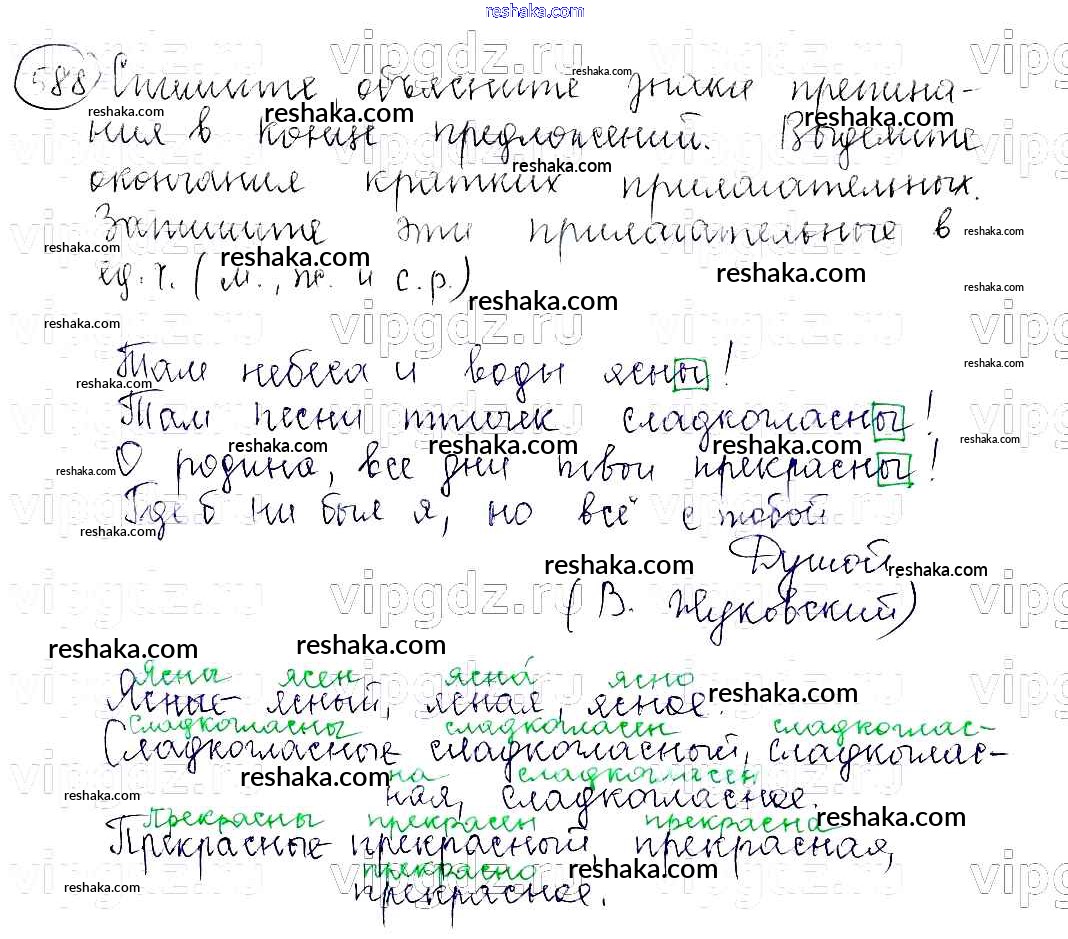 reshaka.com
588 Спишите, объясните знаки препина-
ния в конце предложений. Выделите
окончания кратких прилагательных.
Запишите эти прилагательные в
ед. ч. (м., ж. и с.р.)
Там небеса и воды ясны!
Там песни птичек сладкогласны!
О родина, все дни твои прекрасны!
Где б ни был я, но всё с тобой
Душой.
(В. Жуковский)
Ясны ясен ясна́ ясно
Ясные - ясный, ясная, ясное.
сладкогласны сладкогласен сладкоглас-
Сладкогласные сладкогласный, сладкоглас-
на сладкогласен
ная, сладкогласное.
Прекрасны прекрасен прекрасна
Прекрасные прекрасный, прекрасная,
прекрасно
прекрасное.